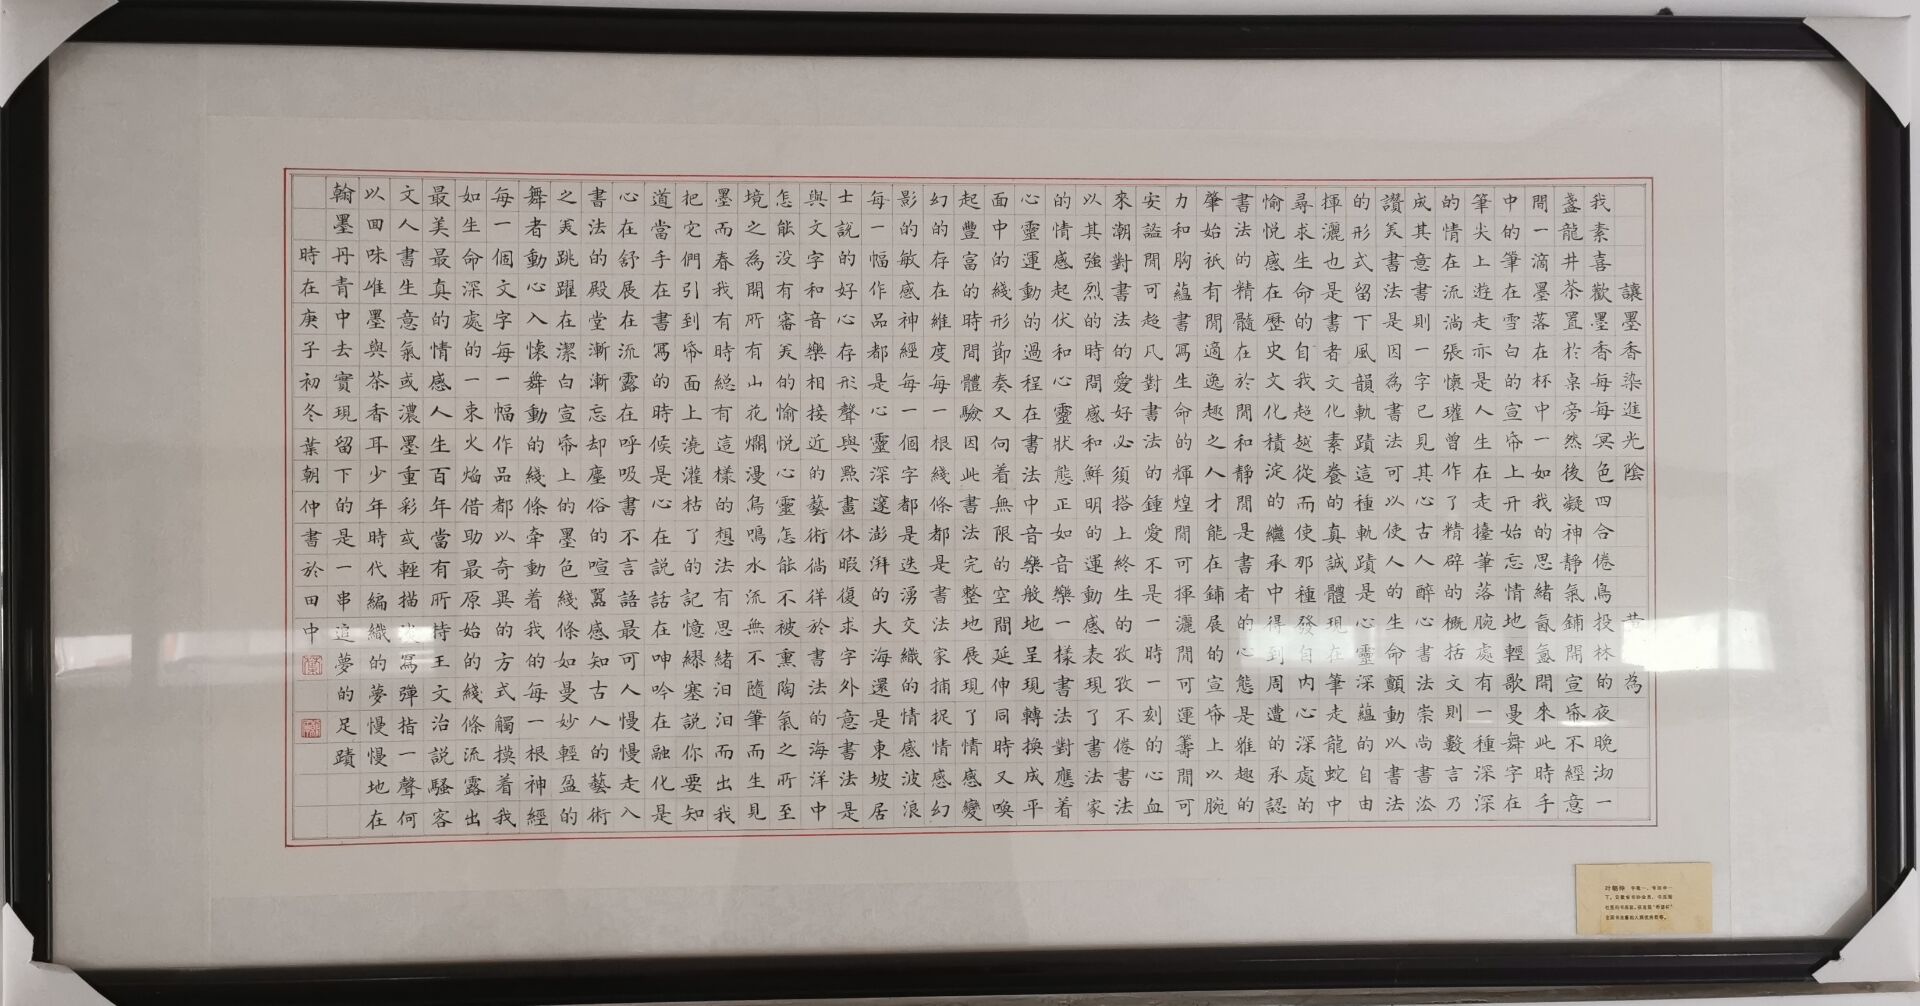 讓墨香染進光陰 黄為
我素喜歡墨香每每冥色四合倦鳥投林的夜晚沏一
盞龍井茶置於桌旁然後凝神靜氣鋪開宣帋不經意
間一滴墨落在杯中一如我的思緒氤氳開來此時手
中的筆在雪白的宣帋上开始忘情地輕歌曼舞字在
筆尖上遊走亦是人生在走擡筆落腕處有一種深深
的情在流淌張懷瓘曾作了精辟的概括文則數言乃
成其意書則一字已見其心古人醉心書法崇尚書法
讚美書法是因為書法可以使人的生命顫動以書法
的形式留下風韻軌蹟這種軌蹟是心靈深蘊的自由
揮灑也是書者文化素養的真誠體現在筆走龍蛇中
尋求生命的自我超越從而使那種發自內心深處的
愉悅感在歷史文化積淀的繼承中得到周遭的承認
書法的精髓在於閒和靜閒是書者的心態是雅趣的
肇始祇有閒適逸趣之人才能在鋪展的宣帋上以腕
力和胸蘊書寫生命的輝煌閒可揮灑閒可運籌閒可
安謐閒可超凡對書法的鍾愛不是一時一刻的心血
來潮對書法的愛好必須搭上終生的孜孜不倦書法
以其強烈的時間感和鮮明的運動感表現了書法家
的情感起伏和心靈狀態正如音樂一樣書法對應着
心靈運動的過程在書法中音樂般地呈現轉換成平
面中的綫形節奏又向着無限的空間延伸同時又喚
起豐富的時間體驗因此書法完整地展現了情感變
幻的存在維度每一根綫條都是書法家捕捉情感幻
影的敏感神經每一個字都是迭湧交織的情感波浪
每一幅作品都是心靈深邃澎湃的大海還是東坡居
士説的好心存形聲與點畫休暇復求字外意書法是
與文字和音樂相接近的藝術徜徉於書法的海洋中
怎能没有審美的愉悅心靈怎能不被熏陶氣之所至
境之為開所有山花爛漫鳥鳴水流無不隨筆而生見
墨而春我有時總有這樣的想法有思緒汩汩而出我
把它們引到帋面上澆灌枯了的記憶繆塞説你要知
道當手在書寫的時候是心在説話在呻吟在融化是
心在舒展在流露在呼吸書不言語最可人慢慢走入
書法的殿堂漸漸忘却塵俗的喧囂感知古人的藝術
之美跳躍在潔白宣帋上的墨色綫條如曼妙輕盈的
舞者動心入懷舞動的綫條牽動着我的每一根神經
每一個文字每一幅作品都以奇異的方式觸摸着我
如生命深處的一束火焰借助最原始的綫條流露出
最美最真的情感人生百年當有所恃王文治説騷客
文人書生意氣或濃墨重彩或輕描淡寫彈指一聲何
以回味唯墨與茶香耳少年時代編織的夢慢慢地在
翰墨丹青中去實現留下的是一串追夢的足蹟
時在庚子初冬葉朝仲書於田中
叶朝仲